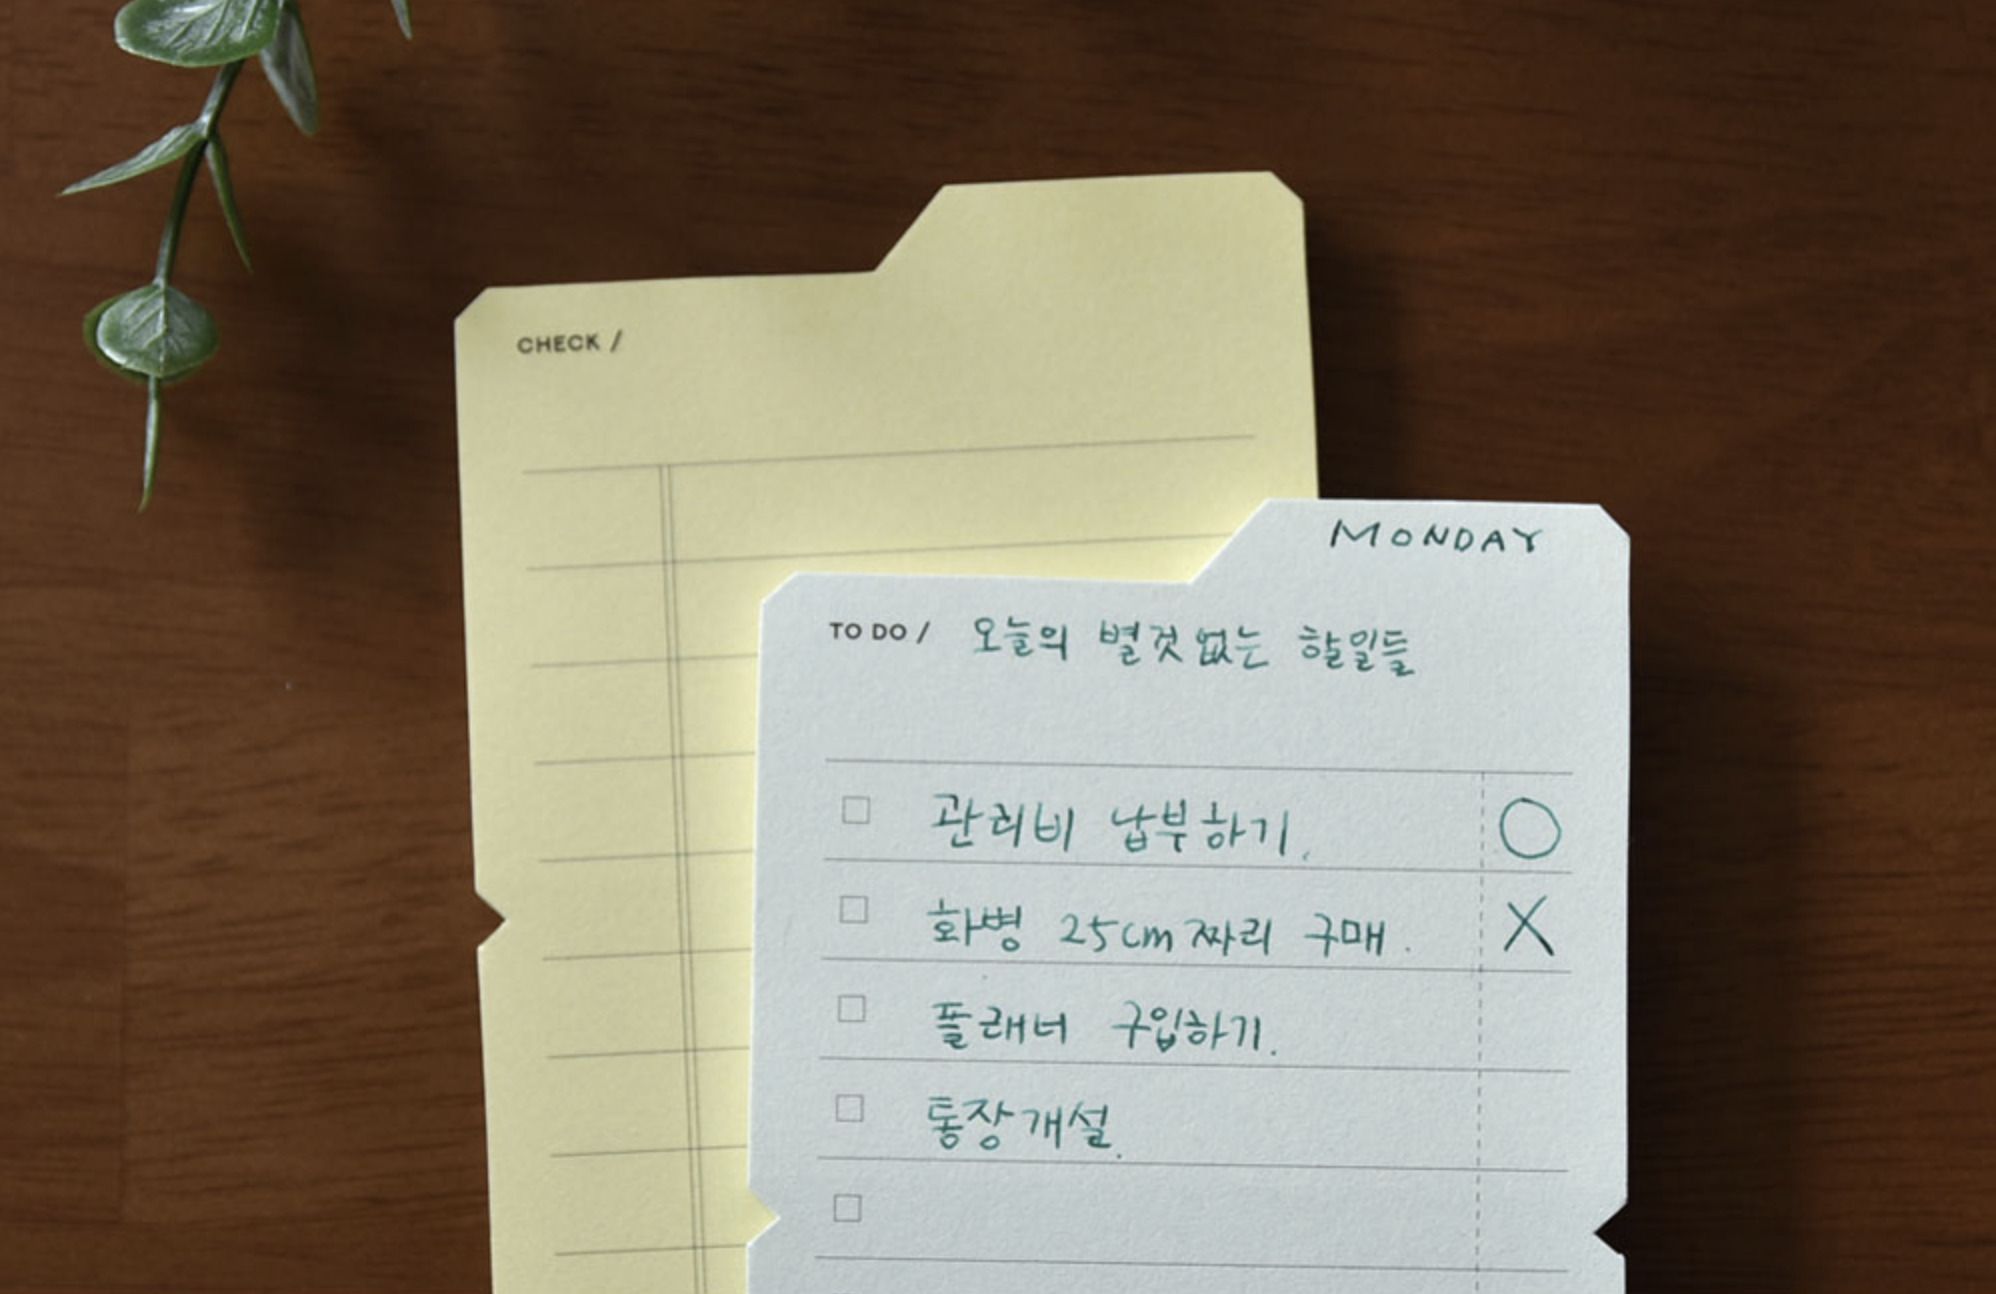 CHECK /
MONDAY
TO DO / 오늘의 별것없는 할일들
관리비 납부하기. O
화병 25cm짜리 구매. X
플래너 구입하기.
통장개설.